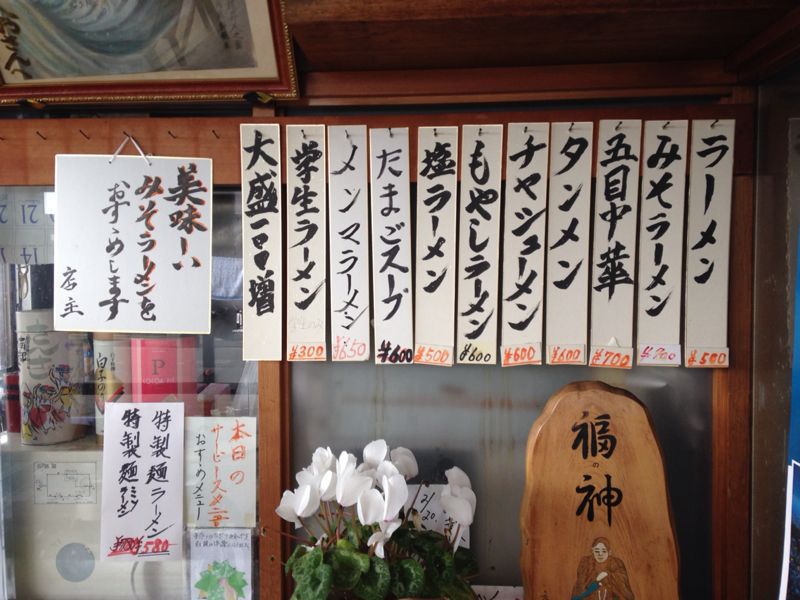 ラーメン
¥500
みそラーメン
¥700
五目中華
¥700
タンメン
¥600
チャシューメン
¥600
もやしラーメン
¥600
塩ラーメン
¥500
たまごスープ
¥600
メンマラーメン
¥650
学生ラーメン
¥300
大盛一〇〇増
美味しい
みそラーメンを
おすゝめします
店主
特製麺ラーメン
特製麺
¥580
本日の
サービスメニュー
おすゝめメニュー
福の神
12/
20.
21
14
P